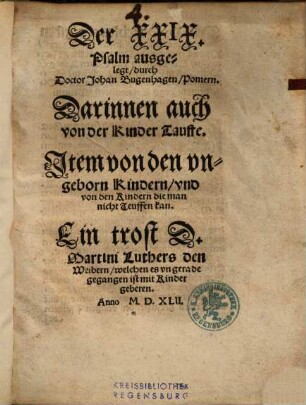 4.
Der XXIX.
Psalm ausge-
legt/durch
Doctor Johan Bugenhagen/Pomern.
Darinnen auch
von der Kinder Tauffe.
Item von den vn-
geborn Kindern/vnd
von den Kindern die man
nicht Teuffen kan.
Ein trost D.
Martini Luthers den
Weibern/welchen es vngerade
gegangen ist mit Kinder
geberen.
Anno M. D. XLII.
KREISBIBLIOTHEK
REGENSBURG